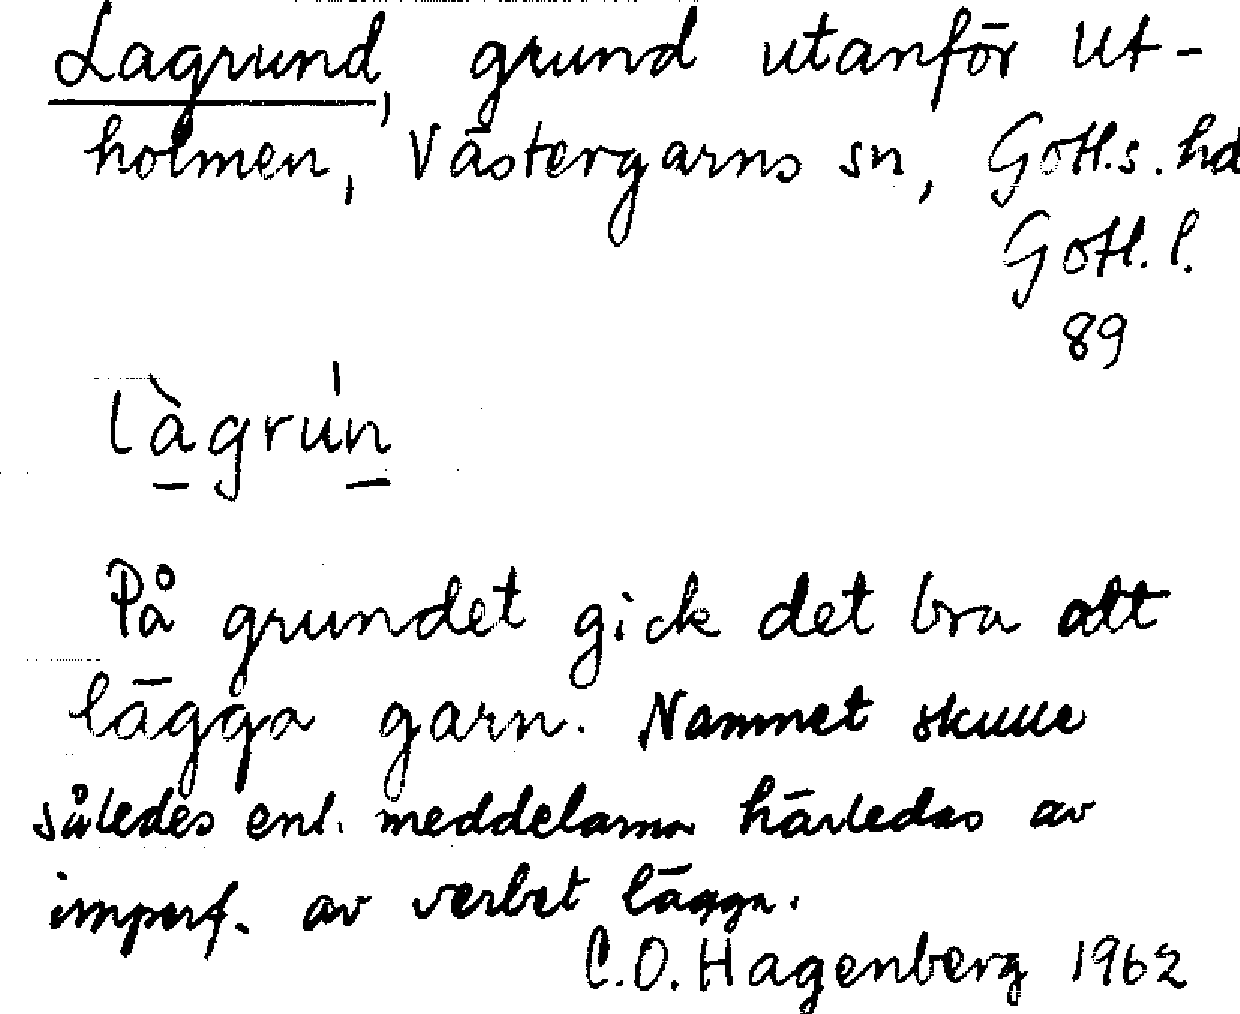 Lagrund, grund utanför Ut-
holmen, Västergarns sn, Gotl.s. hd
Gotl. l.
89
làgrun
På grundet gick det bra att
lägga garn. Namnet skulle
således enl. meddelarna härledas av
imperf. av verbet lägga.
C.O. Hagenberg 1962